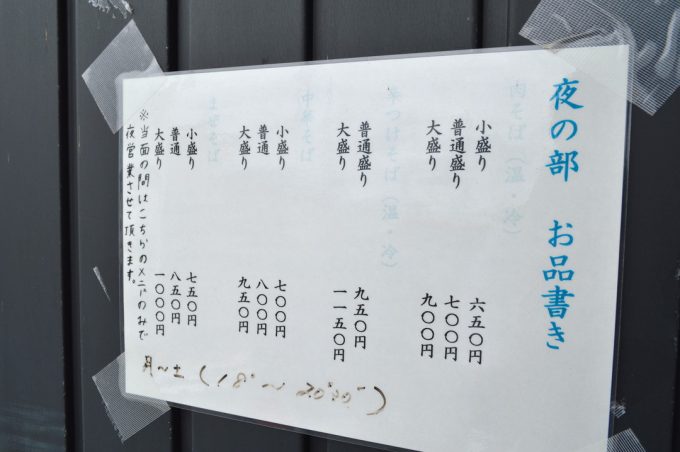 夜の部 お品書き
肉そば(温・冷)
小盛り 六五〇円
普通盛り 七〇〇円
大盛り 九〇〇円
辛つけそば(温・冷)
普通盛り 九五〇円
大盛り 一一五〇円
中華そば
小盛り 七〇〇円
普通 八〇〇円
大盛り 九五〇円
まぜそば
小盛り 七五〇円
普通 八五〇円
大盛り 一〇〇〇円
※当面の間はこちらのメニューのみで
夜営業させて頂きます。
月〜土(18°〜20°30")